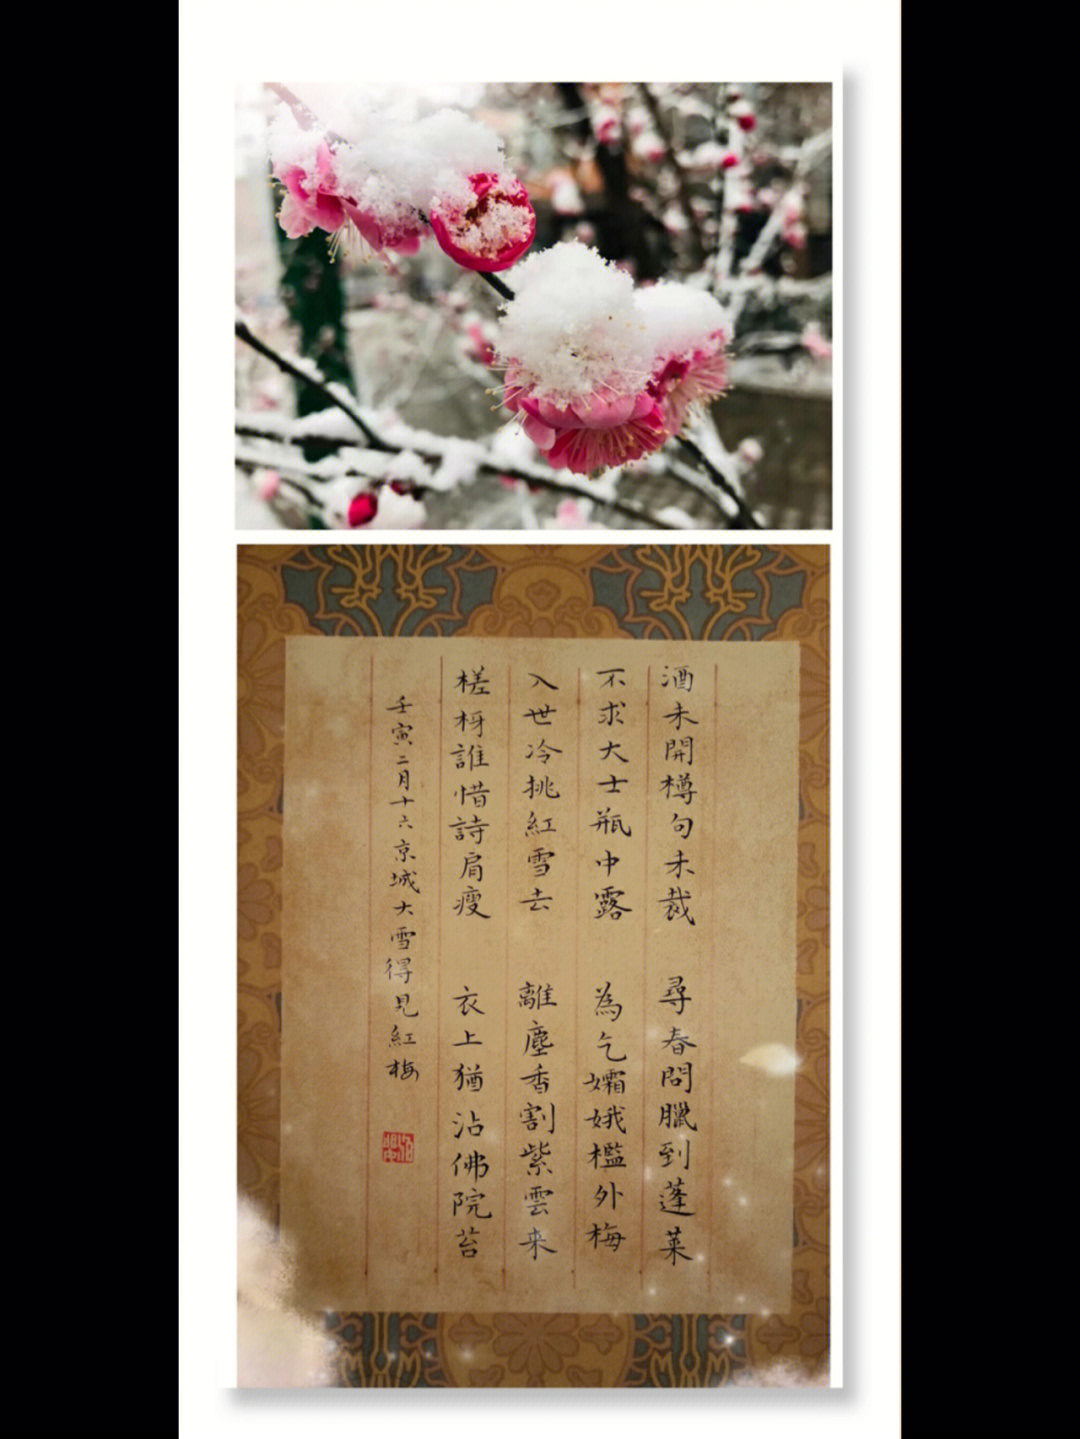 酒未開樽句未裁　尋春問臘到蓬萊
不求大士瓶中露　為乞孀娥檻外梅
入世冷挑紅雪去　離塵香割紫雲來
槎枒誰惜詩肩瘦　衣上猶沾佛院苔
壬寅二月十六京城大雪得見紅梅